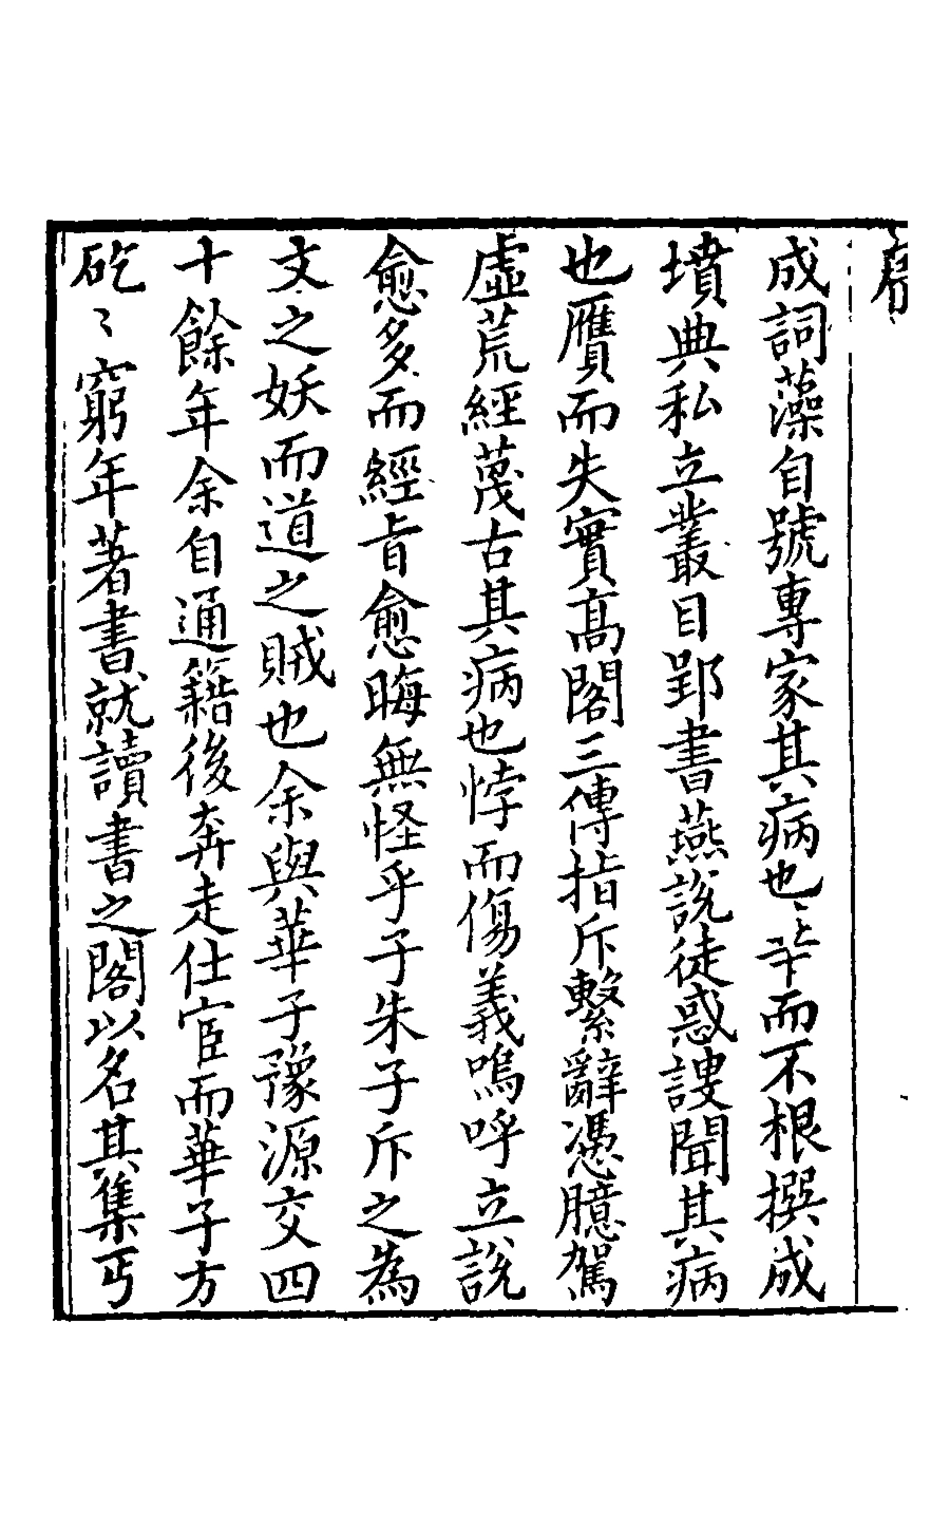 序
成詞藻自號專家其病也而不根撰成
墳典私立叢目郢書燕說徒惑謏聞其病
也贗而失實高閣三傳指斥繫辭憑臆駕
虛荒經蔑古其病也悖而傷義嗚呼立說
愈多而經旨愈晦無怪乎子朱子斥之為
文之妖而道之賊也余與華子豫源交四
十餘年余自通籍後奔走仕宦而華子方
矻〻窮年著書就讀書之閣以名其集丐